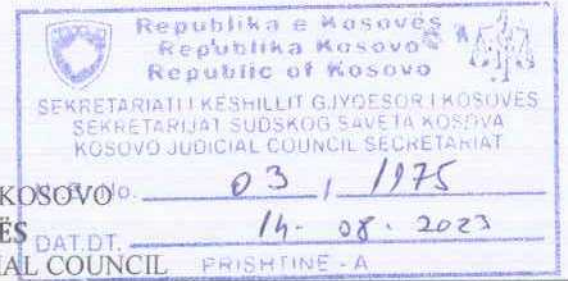 Republika e Kosovës
Republika Kosovo
Republic of Kosovo
SEKRETARIATI I KËSHILLIT GJYQËSOR I KOSOVËS
SEKRETARIJAT SUDSKOG SAVETA KOSOVA
KOSOVO JUDICIAL COUNCIL SECRETARIAT
KOSOVO No. 03 / 1975
ËS DAT.DT. 14- 08. 2023
IAL COUNCIL PRISHTINË - A